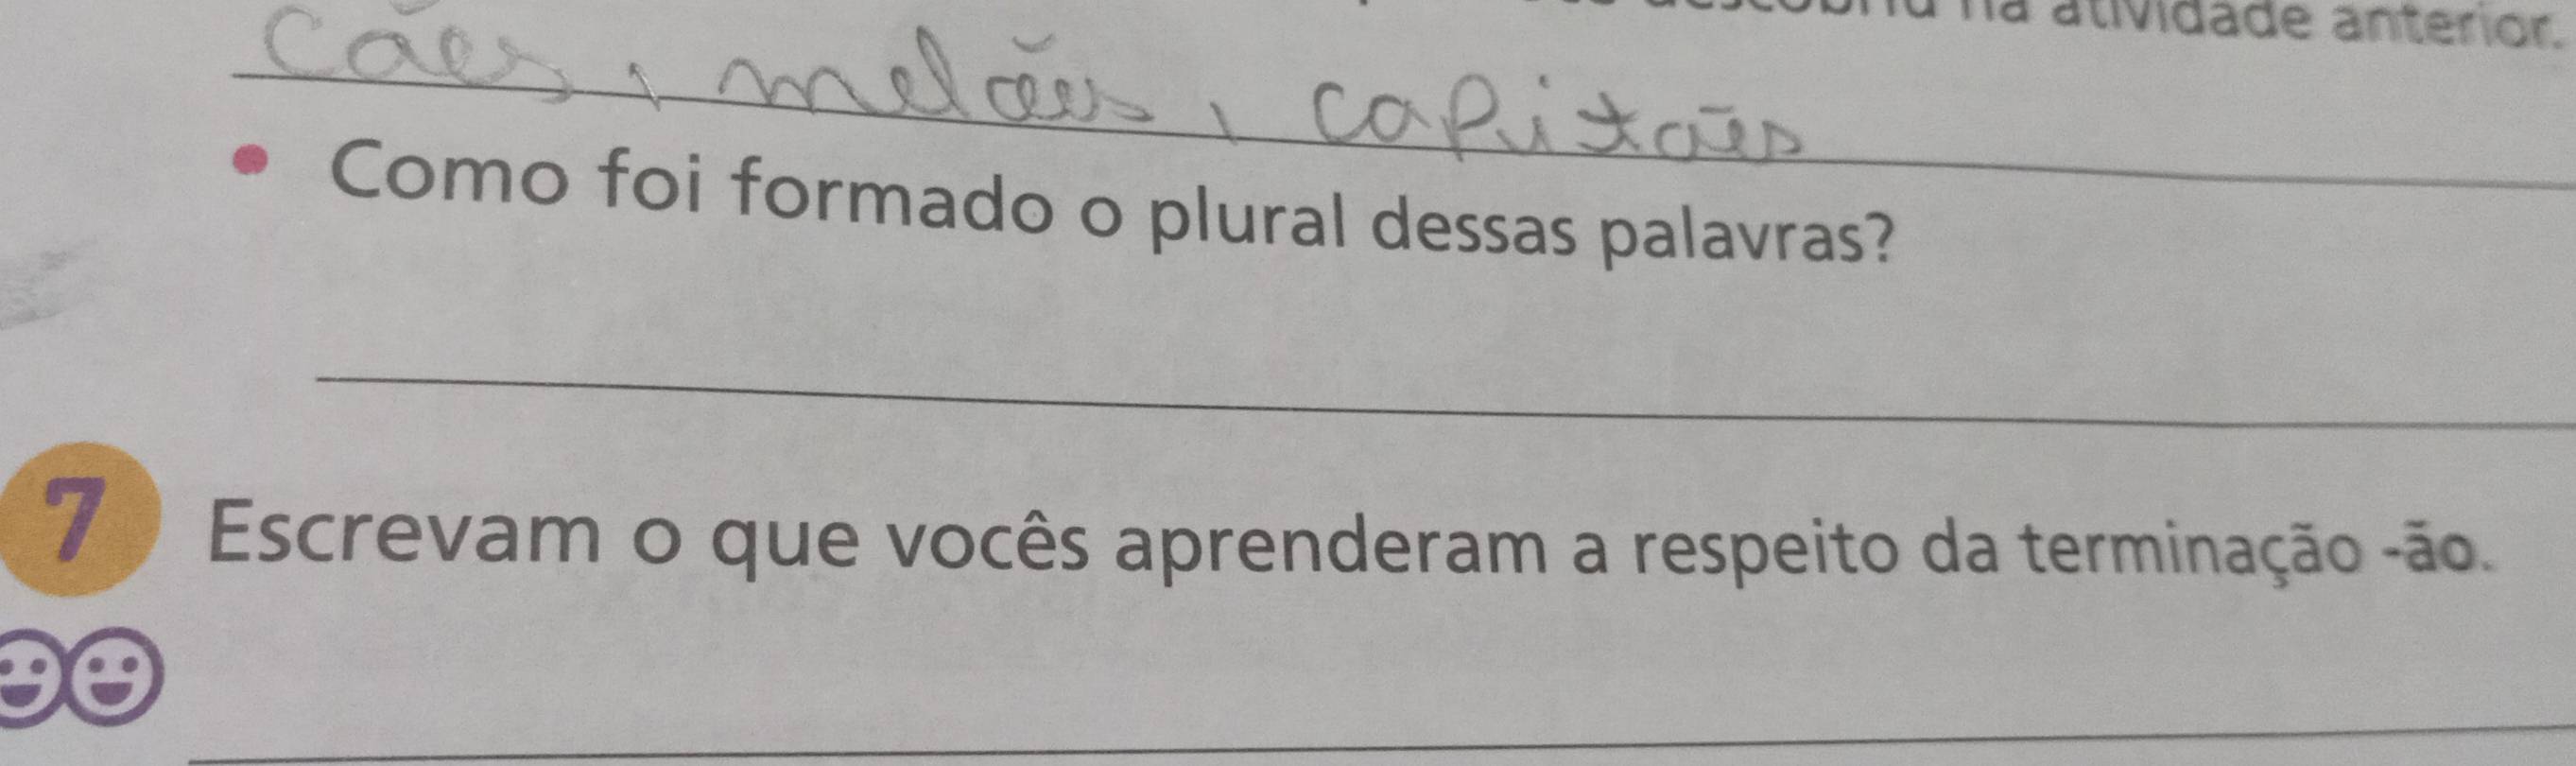 na atividade anterior.
cães, melães, capitães
• Como foi formado o plural dessas palavras?
7 Escrevam o que vocês aprenderam a respeito da terminação -ão.